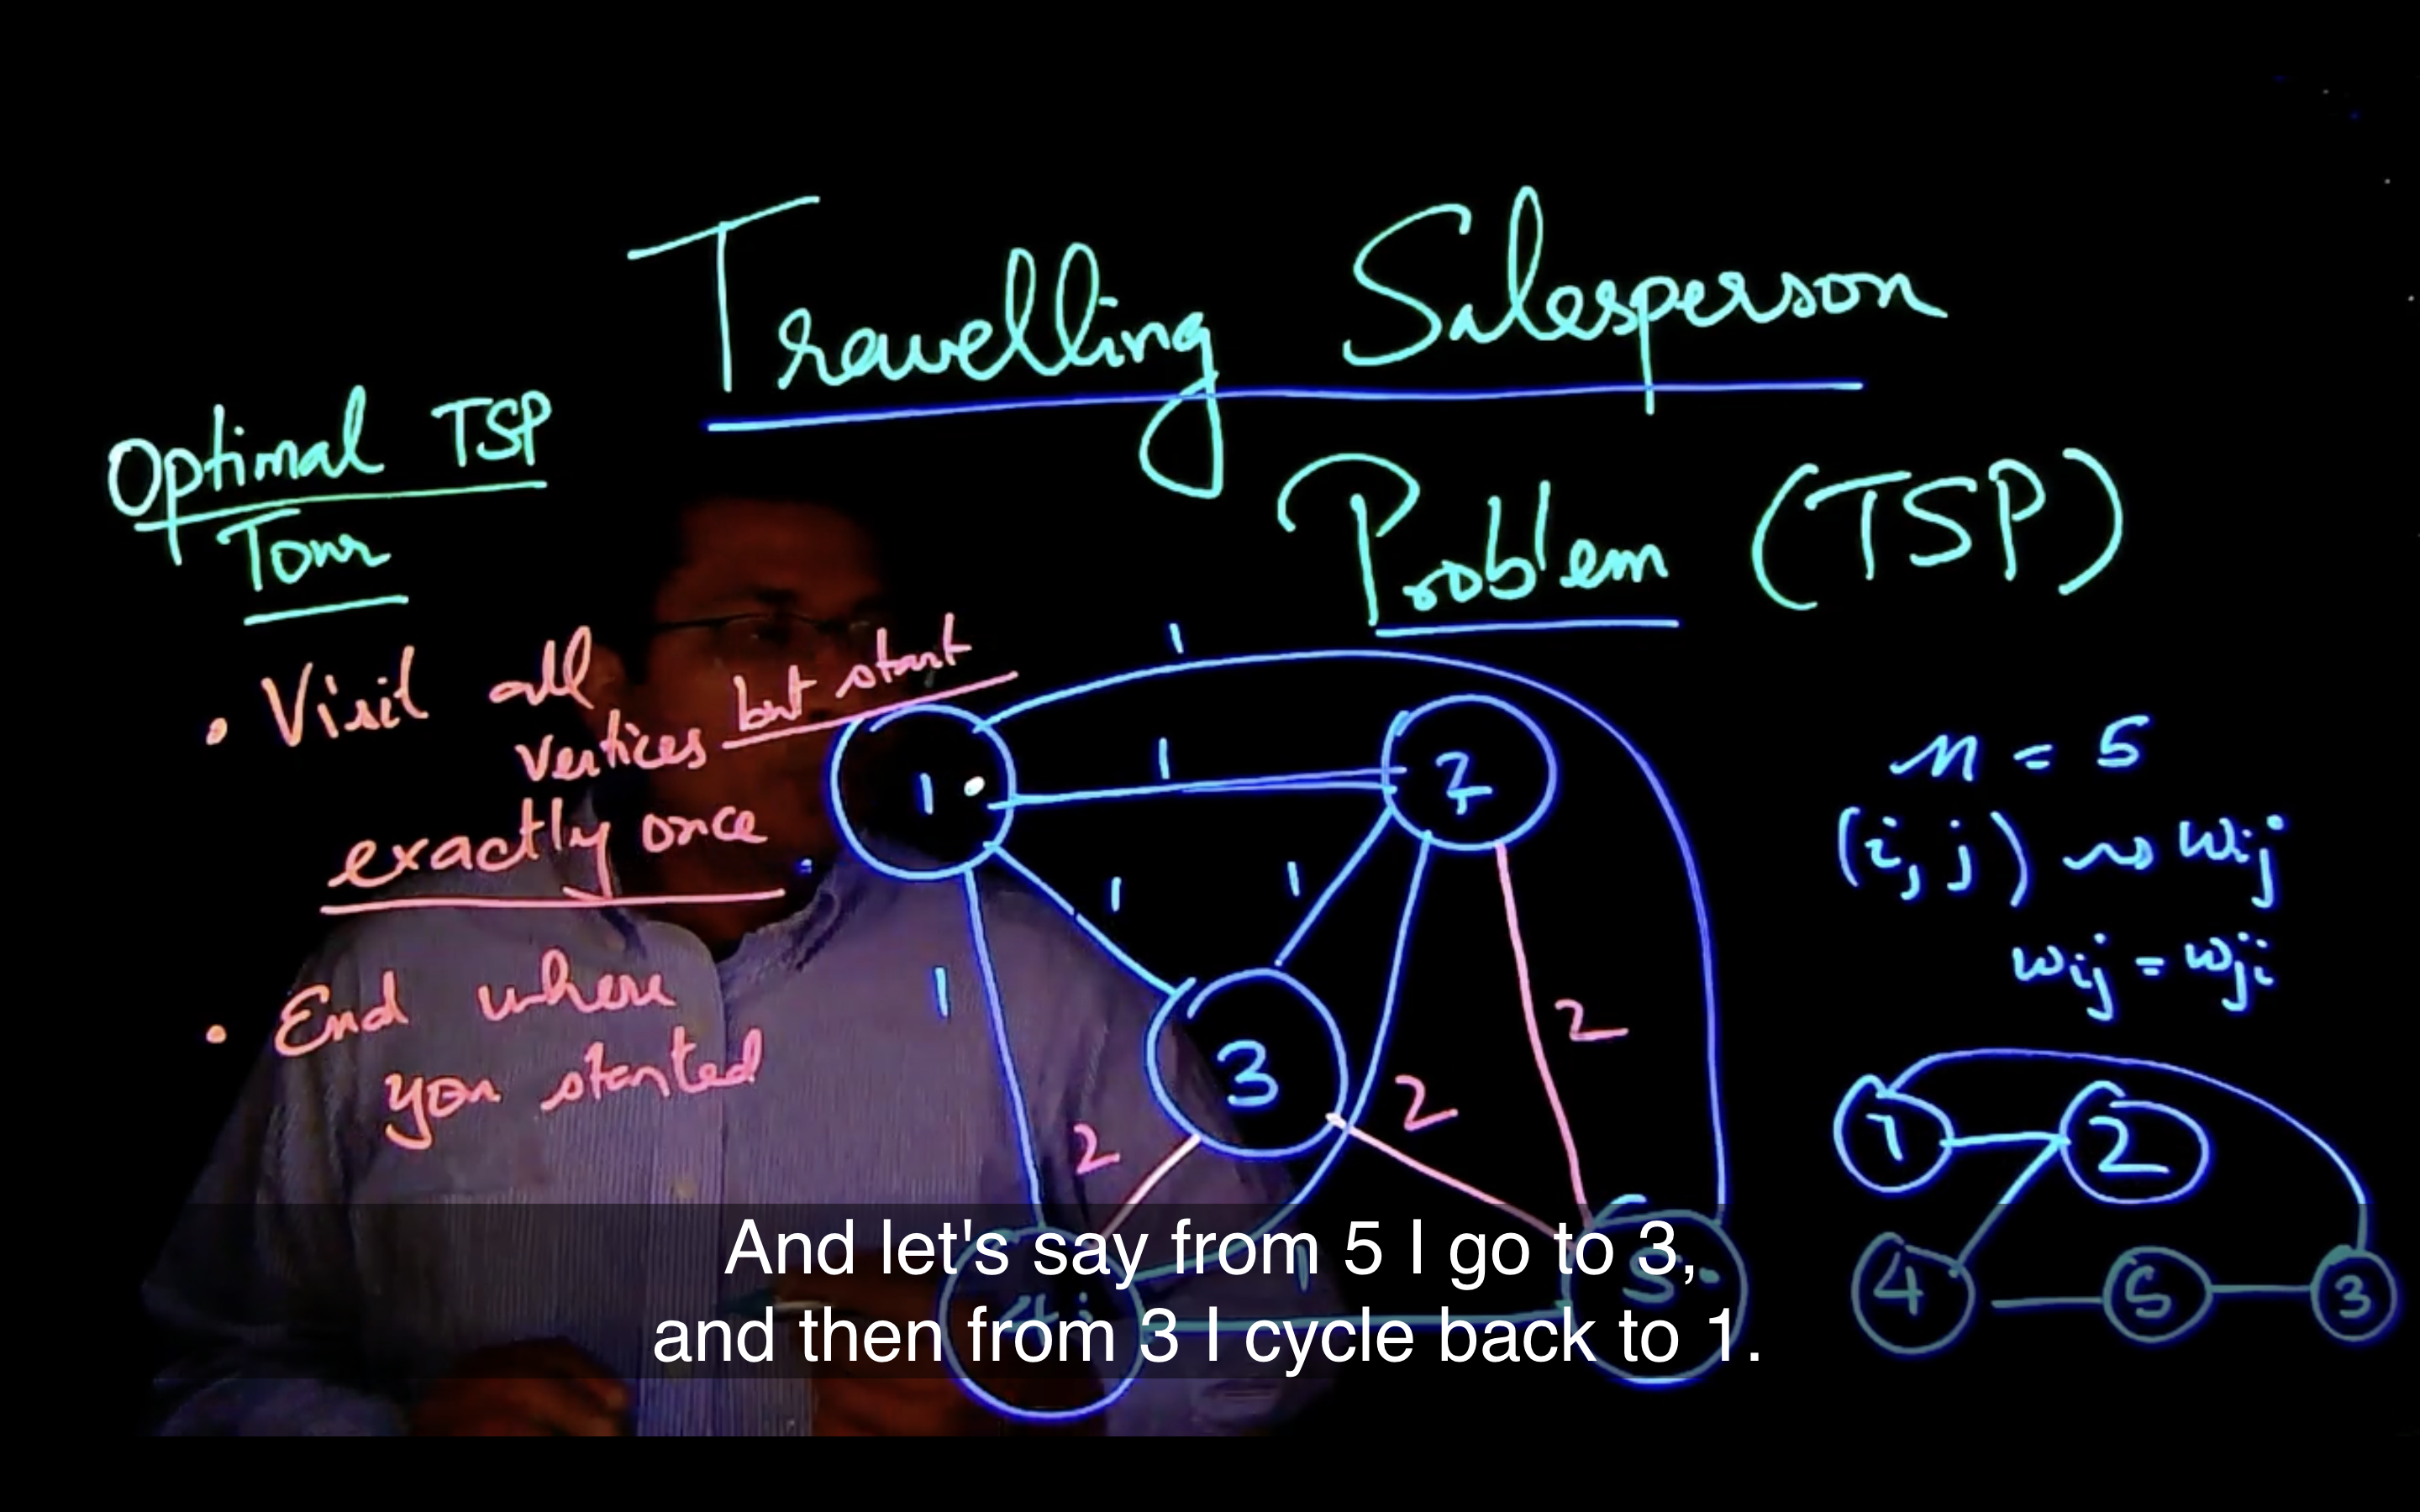 Travelling Salesperson
Problem (TSP)
Optimal TSP
Tour
• Visit all
vertices but start
exactly once
• End where
you started
1
1
2
1
1
1
3
1
2
2
2
4
1
5
n = 5
(i, j) ~> wij
wij = wji
1 2
4 5 3
And let's say from 5 I go to 3,
and then from 3 I cycle back to 1.